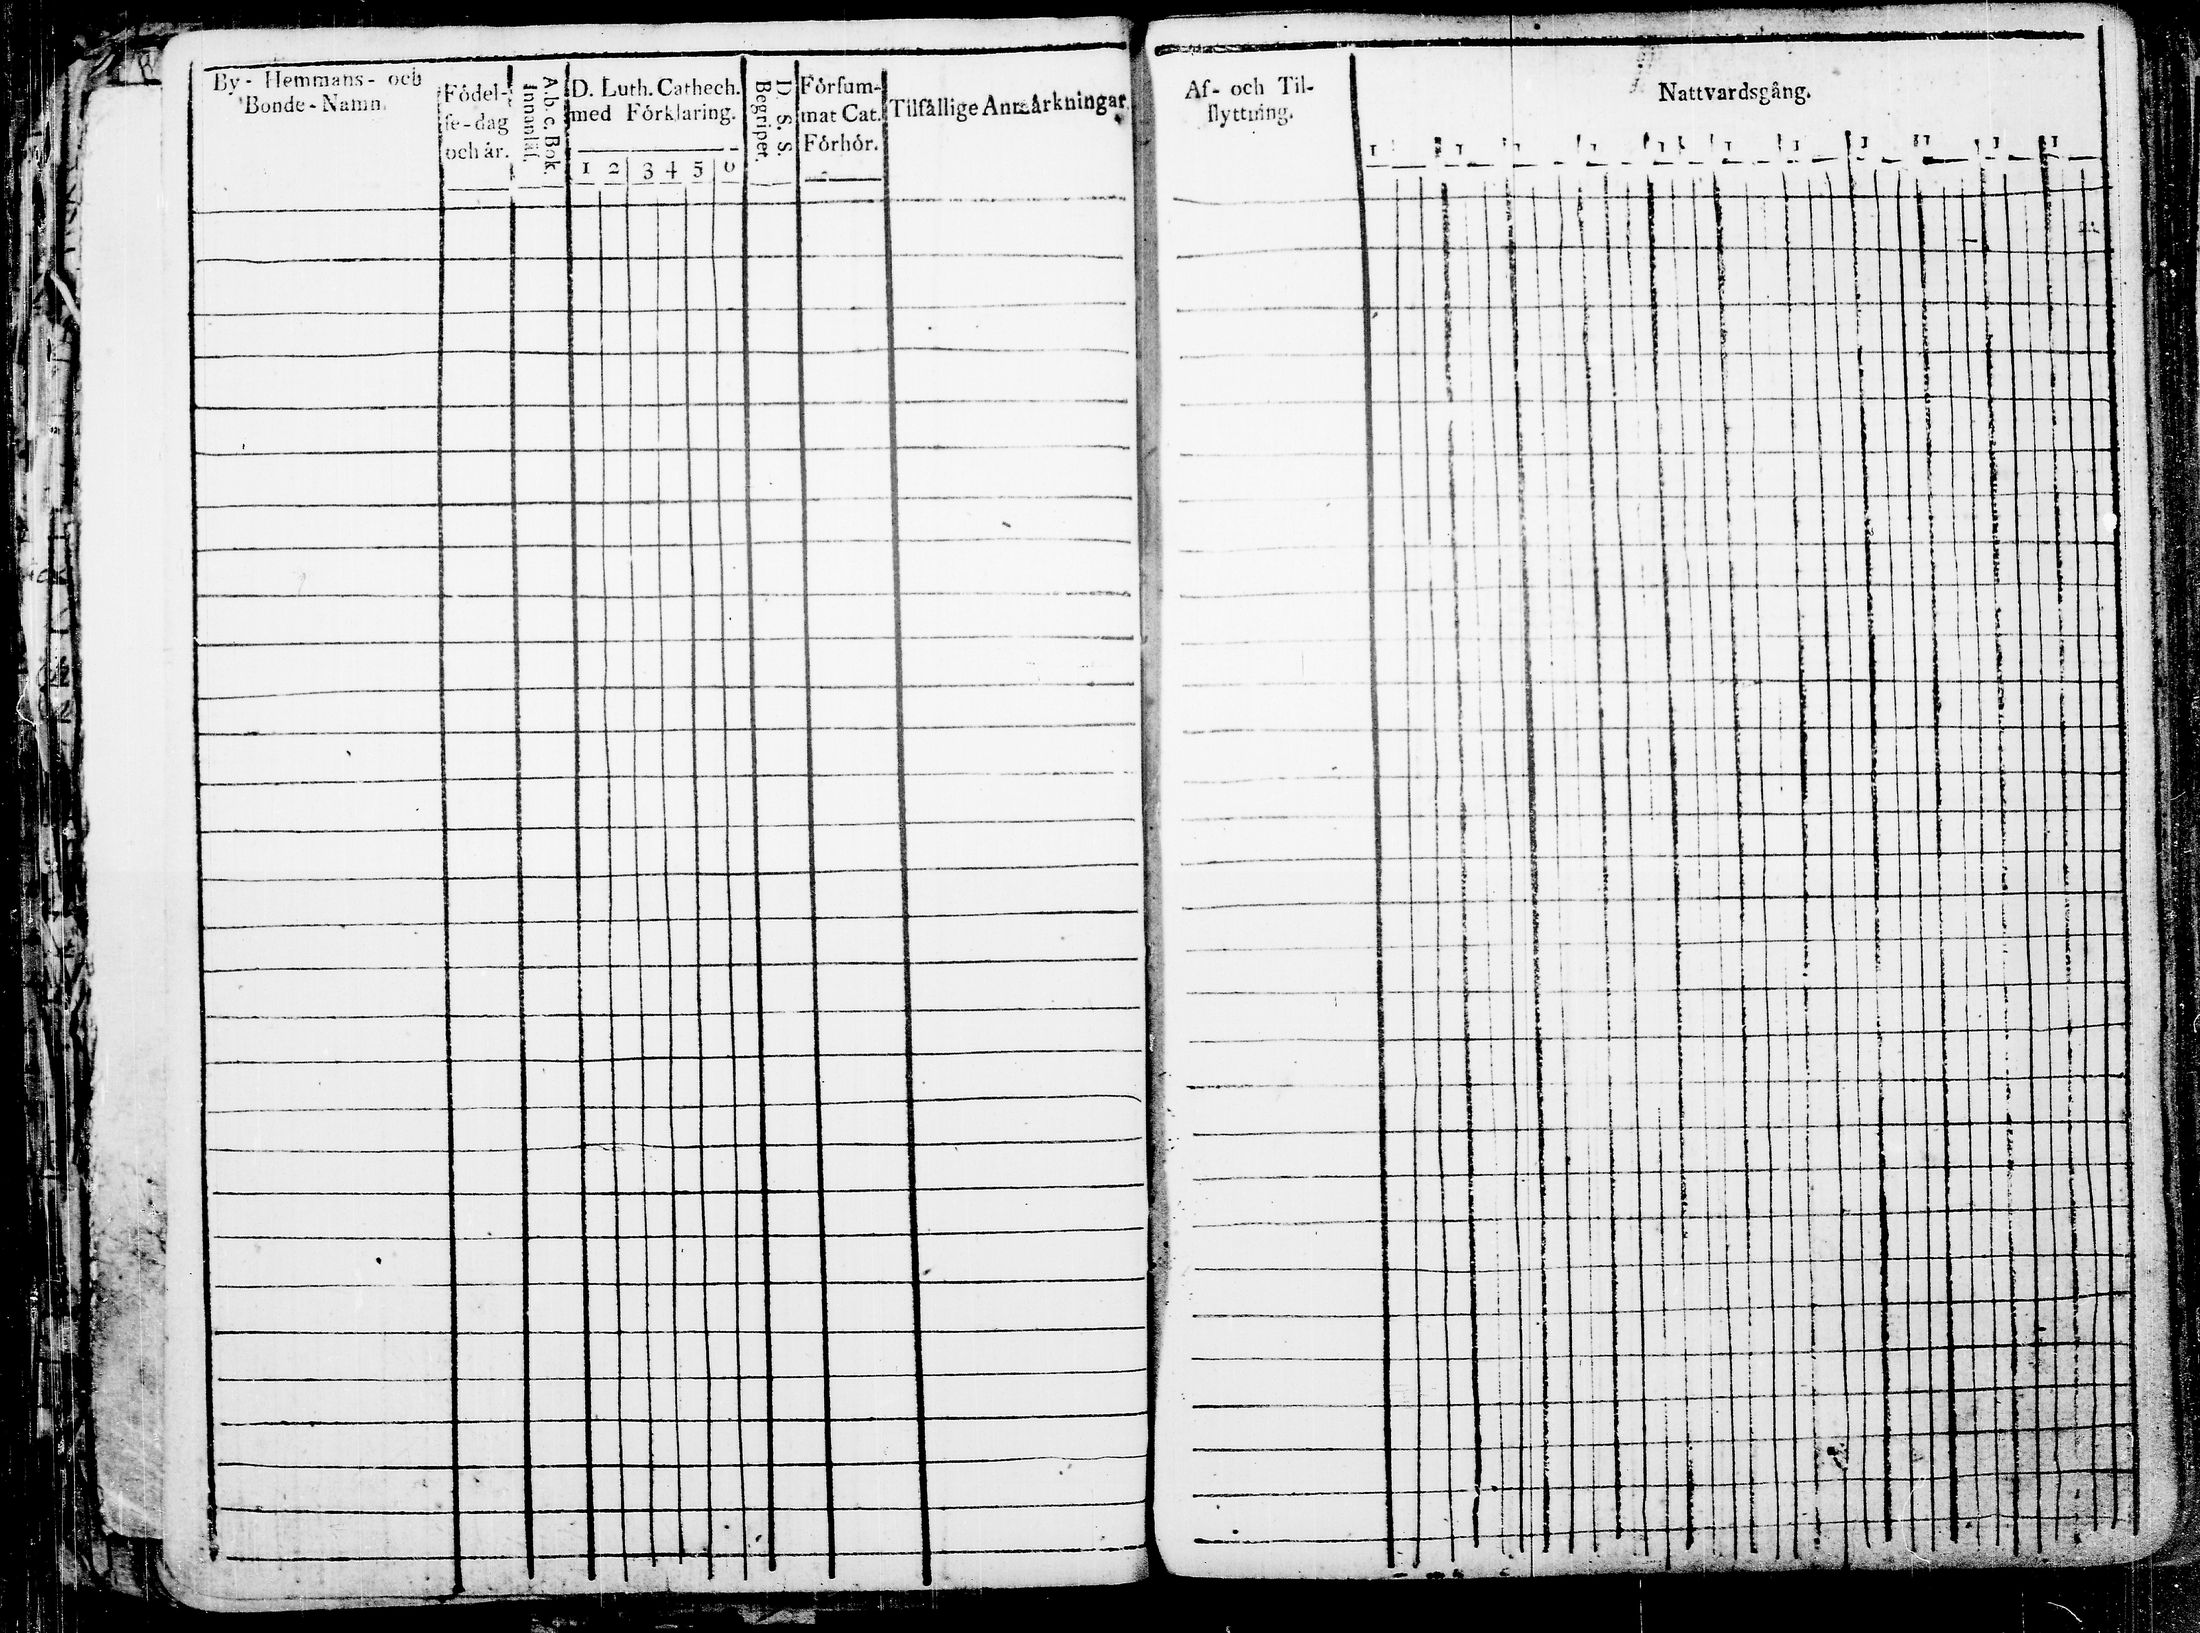 By - Hemmans - och
Bonde - Namn.
Födel-
se-dag
och år.
A.b.c. Bok
Innanläs.
D. Luth. Cathech.
med Förklaring.
1 2 3 4 5 6
D. S. S.
Begripet.
Försum-
mat Cat.
Förhör.
Tilfällige Anmärkningar.
Af- och Til-
flyttning.
Nattvardsgång.
1 1 1 1 1 1 1 1 1 1 1